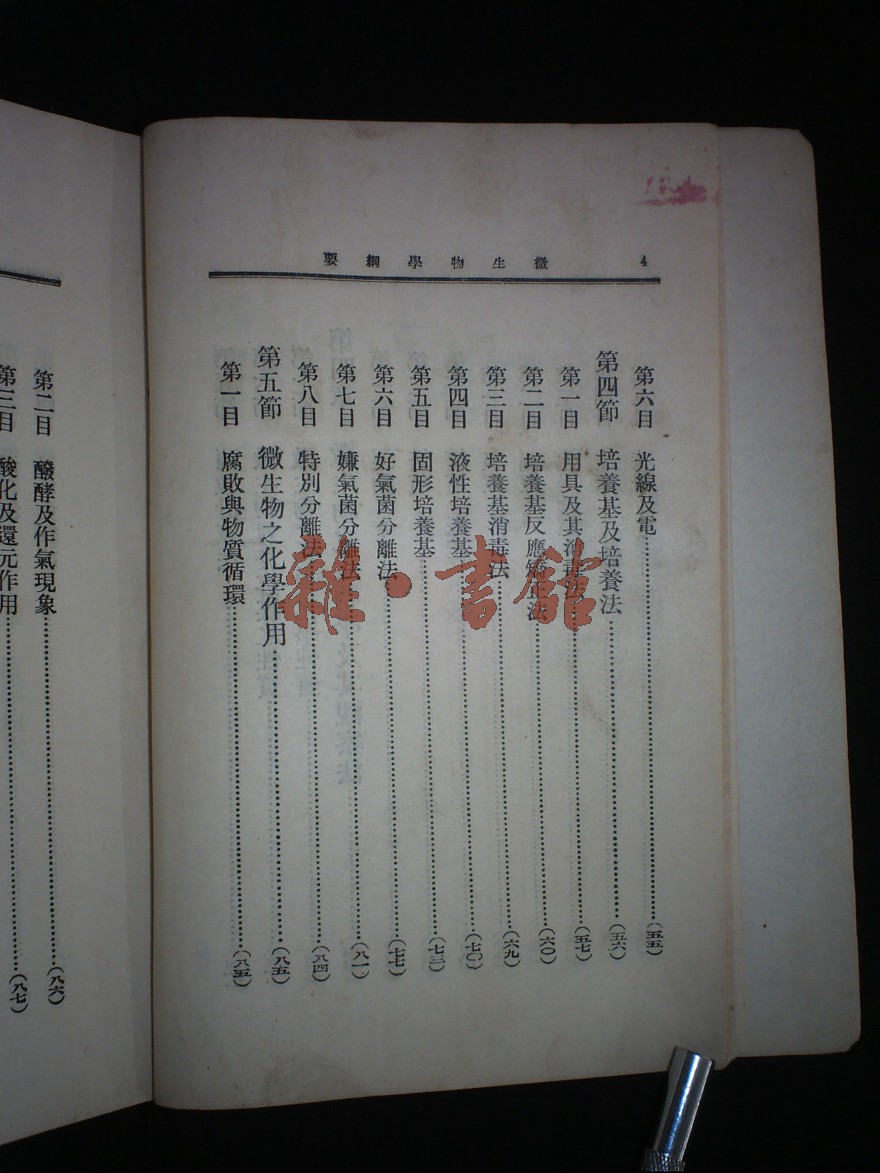 4 微生物學綱要
第六目 光線及電(五五)
第四節 培養基及培養法(五六)
第一目 用具及其消毒法(五七)
第二目 培養基反應矯正法(六〇)
第三目 培養基消毒法(六九)
第四目 液性培養基(七〇)
第五目 固形培養基(七三)
第六目 好氣菌分離法(七七)
第七目 嫌氣菌分離法(八一)
第八目 特別分離法(八四)
第五節 微生物之化學作用(八五)
第一目 腐敗與物質循環(八五)
第二目 醱酵及作氣現象(八六)
第三目 酸化及還元作用(八七)
雜·書館